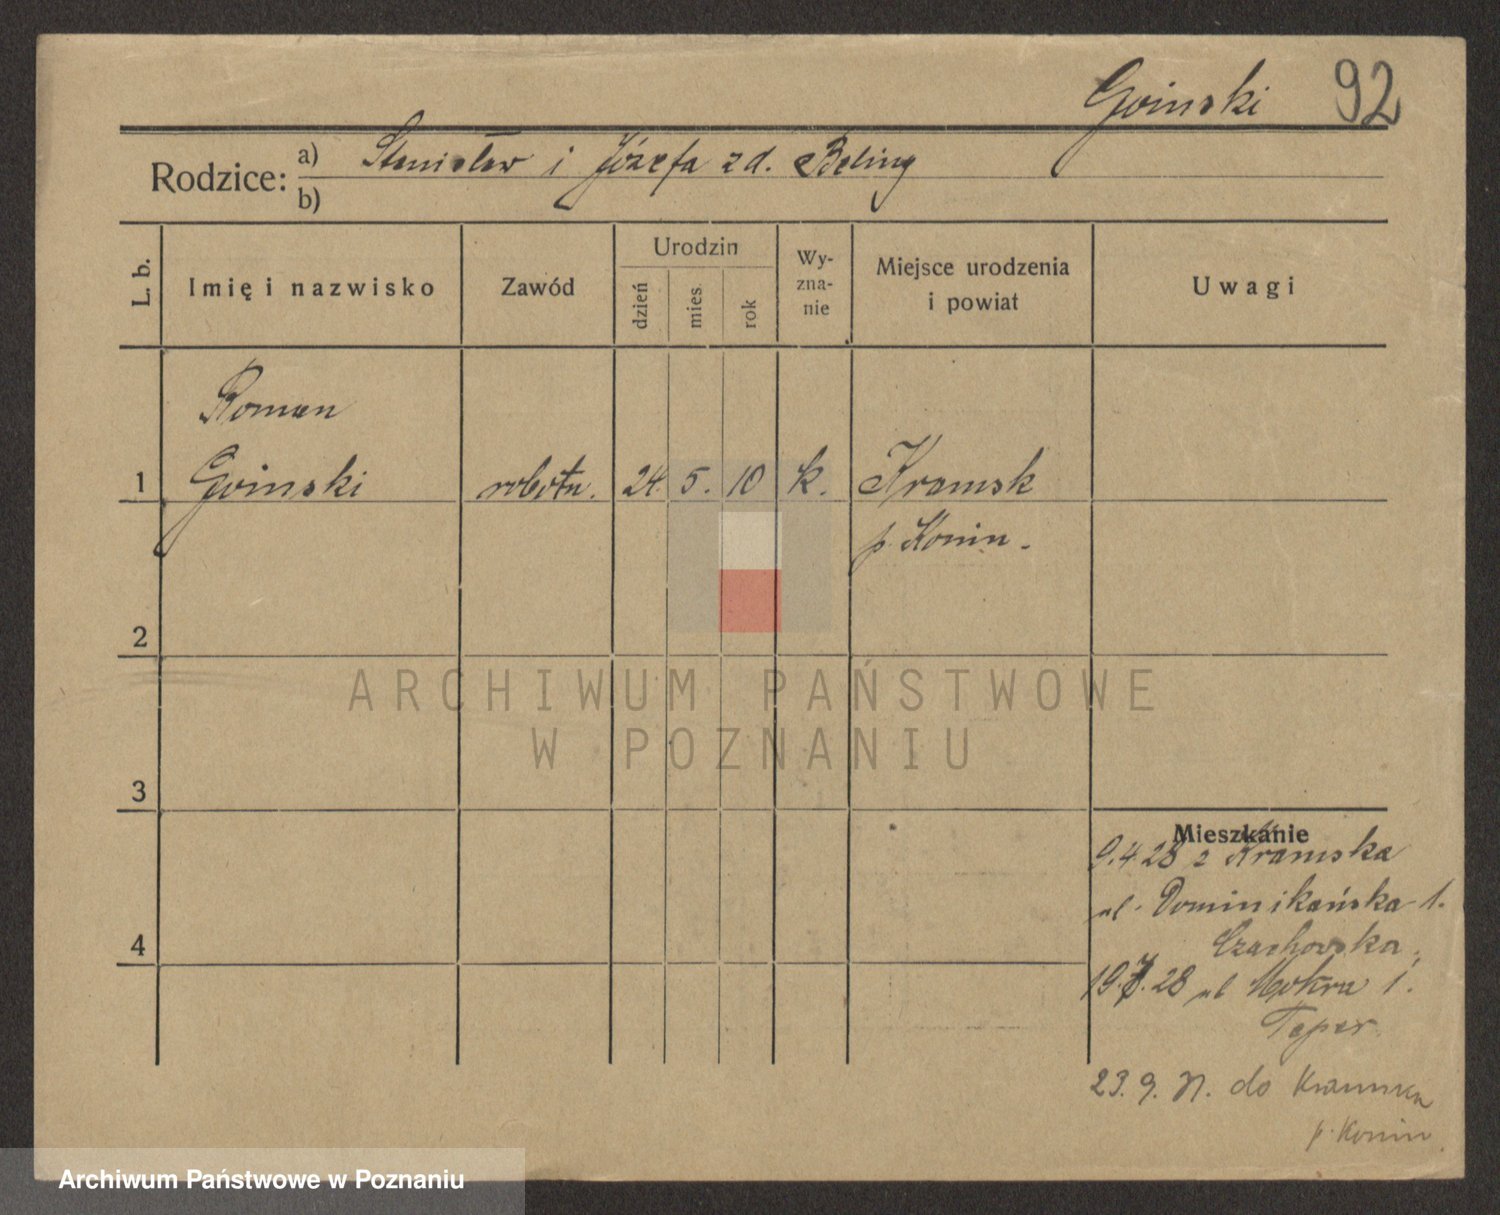 Goinski 92
Rodzice: a) Stanisław i Józefa z d. Beling
b)
L. b.
Imię i nazwisko
Zawód
Urodzin
dzień
mies.
rok
Wy-
zna-
nie
Miejsce urodzenia
i powiat
Uwagi
Roman
1 Goinski robotn. 24. 5. 10 k. Kramsk
p. Konin.
2
ARCHIWUM PAŃSTWOWE
W POZNANIU
3
Mieszkanie
9.4.28 z Kramska
ul. Dominikańska 1.
Czachowska.
4
19.7.28 ul Mokra 1.
Teper
23. 9. do Kramska
p. Konin
Archiwum Państwowe w Poznaniu